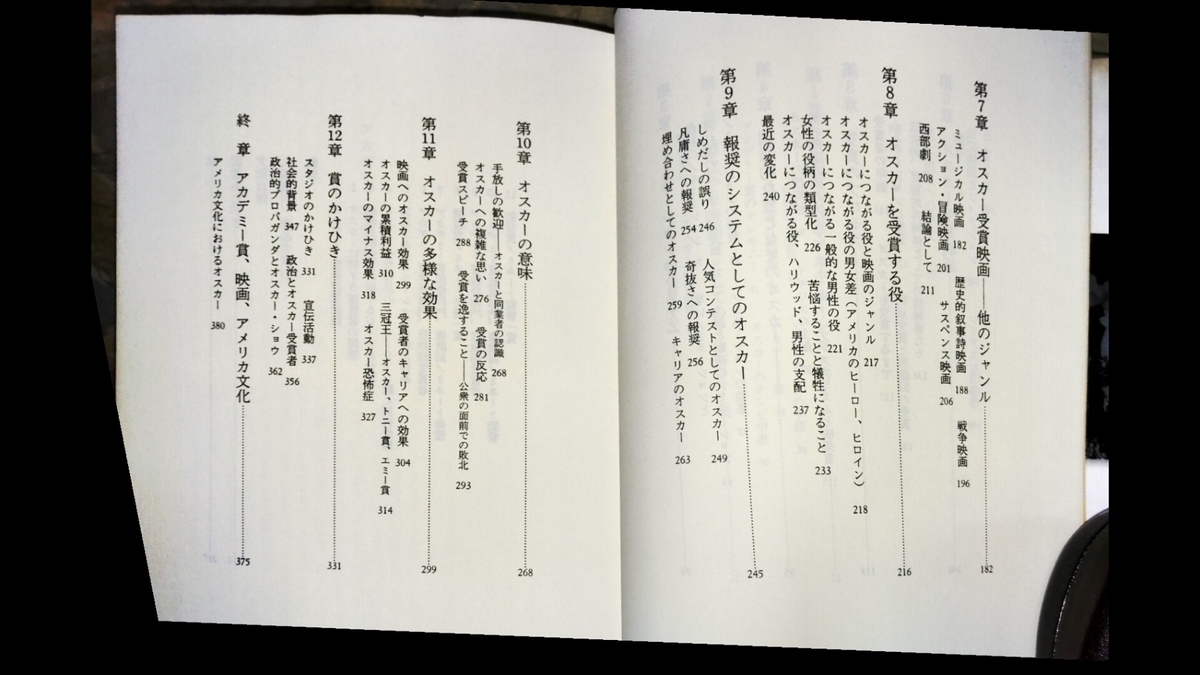 第7章 オスカー受賞映画——他のジャンル 182
ミュージカル映画 182 歴史的叙事詩映画 188 戦争映画 196
アクション・冒険映画 201 サスペンス映画 206
西部劇 208 結論として 211
第8章 オスカーを受賞する役 216
オスカーにつながる役と映画のジャンル 217
オスカーにつながる役の男女差（アメリカのヒーロー、ヒロイン） 218
オスカーにつながる一般的な男性の役 221
女性の役柄の類型化 226 苦悩することと犠牲になること 233
オスカーにつながる役、ハリウッド、男性の支配 237
最近の変化 240
第9章 報奨のシステムとしてのオスカー 245
しめだしの誤り 246 人気コンテストとしてのオスカー 249
凡庸さへの報奨 254 奇抜さへの報奨 256
埋め合わせとしてのオスカー 259 キャリアのオスカー 263
第10章 オスカーの意味 268
手放しの歓迎——オスカーと同業者の認識 268
オスカーへの複雑な思い 276 受賞の反応 281
受賞スピーチ 288 受賞を逸すること——公衆の面前での敗北 293
第11章 オスカーの多様な効果 299
映画へのオスカー効果 299 受賞者のキャリアへの効果 304
オスカーの累積利益 310 三冠王——オスカー、トニー賞、エミー賞 314
オスカーのマイナス効果 318 オスカー恐怖症 327
第12章 賞のかけひき 331
スタジオのかけひき 331 宣伝活動 337
社会的背景 347 政治とオスカー受賞者 356
政治的プロパガンダとオスカー・ショウ 362
終 章 アカデミー賞、映画、アメリカ文化 375
アメリカ文化におけるオスカー 380